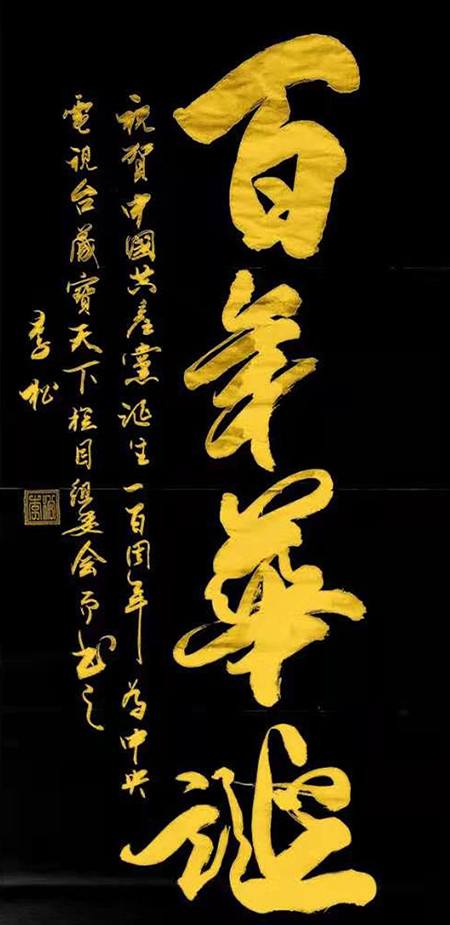 百年華誕
祝賀中國共產黨誕生一百周年為中央
電視台藏寶天下栏目組委会而书之
李松